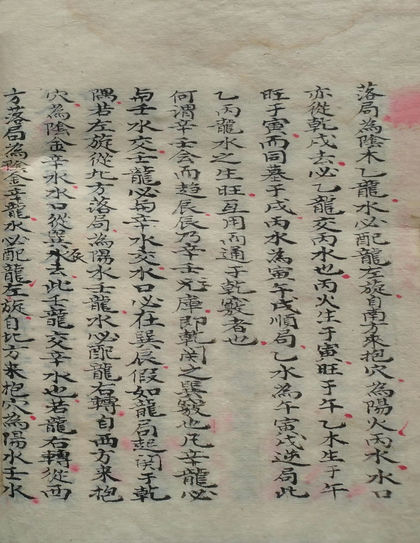 落局為陰木乙龍水必配龍左旋自南方來抱穴為陽火丙水水口
亦從乾戌去必乙龍交丙水也丙火生于寅旺于午乙木生于午
旺于寅而同墓于戌丙水為寅午戌順局乙水為午寅戌逆局此
乙丙龍水之生旺互用而通于乾竅者也
何謂辛壬会而趋辰辰乃辛壬之庫即乾関之巽竅也凡辛龍必
与壬水交壬龍必与辛水交水口必在巽辰假如龍局起関于乾
隅若左旋從北方落局為陽水壬龍水必配龍右轉自西方來抱
穴為陰金辛水水口從巽辰去此壬龍交辛水也若龍右轉從西
方落局為陰金辛龍水必配龍左旋自北方來抱穴為陽水壬水